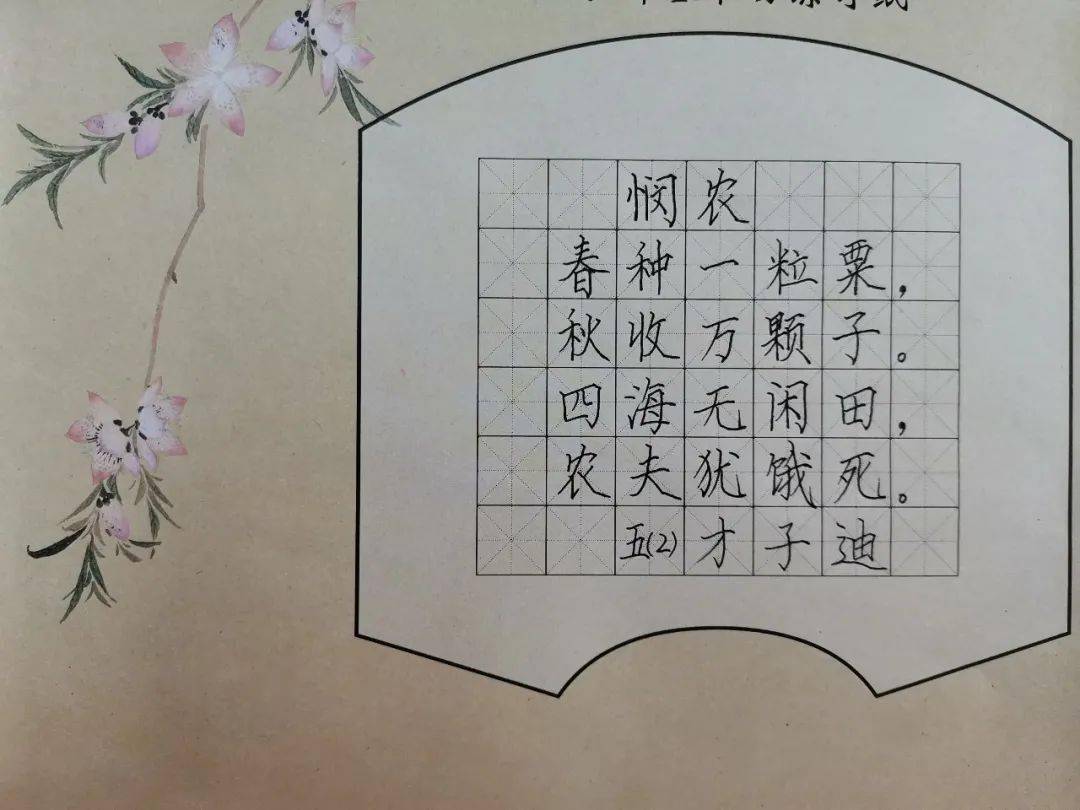 悯农
春种一粒粟，
秋收万颗子。
四海无闲田，
农夫犹饿死。
五(2) 才子迪